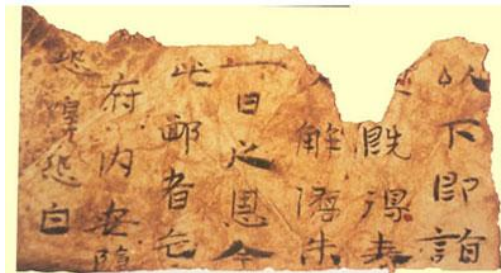 以下即詣
既得表
解未
一日之恩今
此郵者忘
府内安隱
恐惶恐白